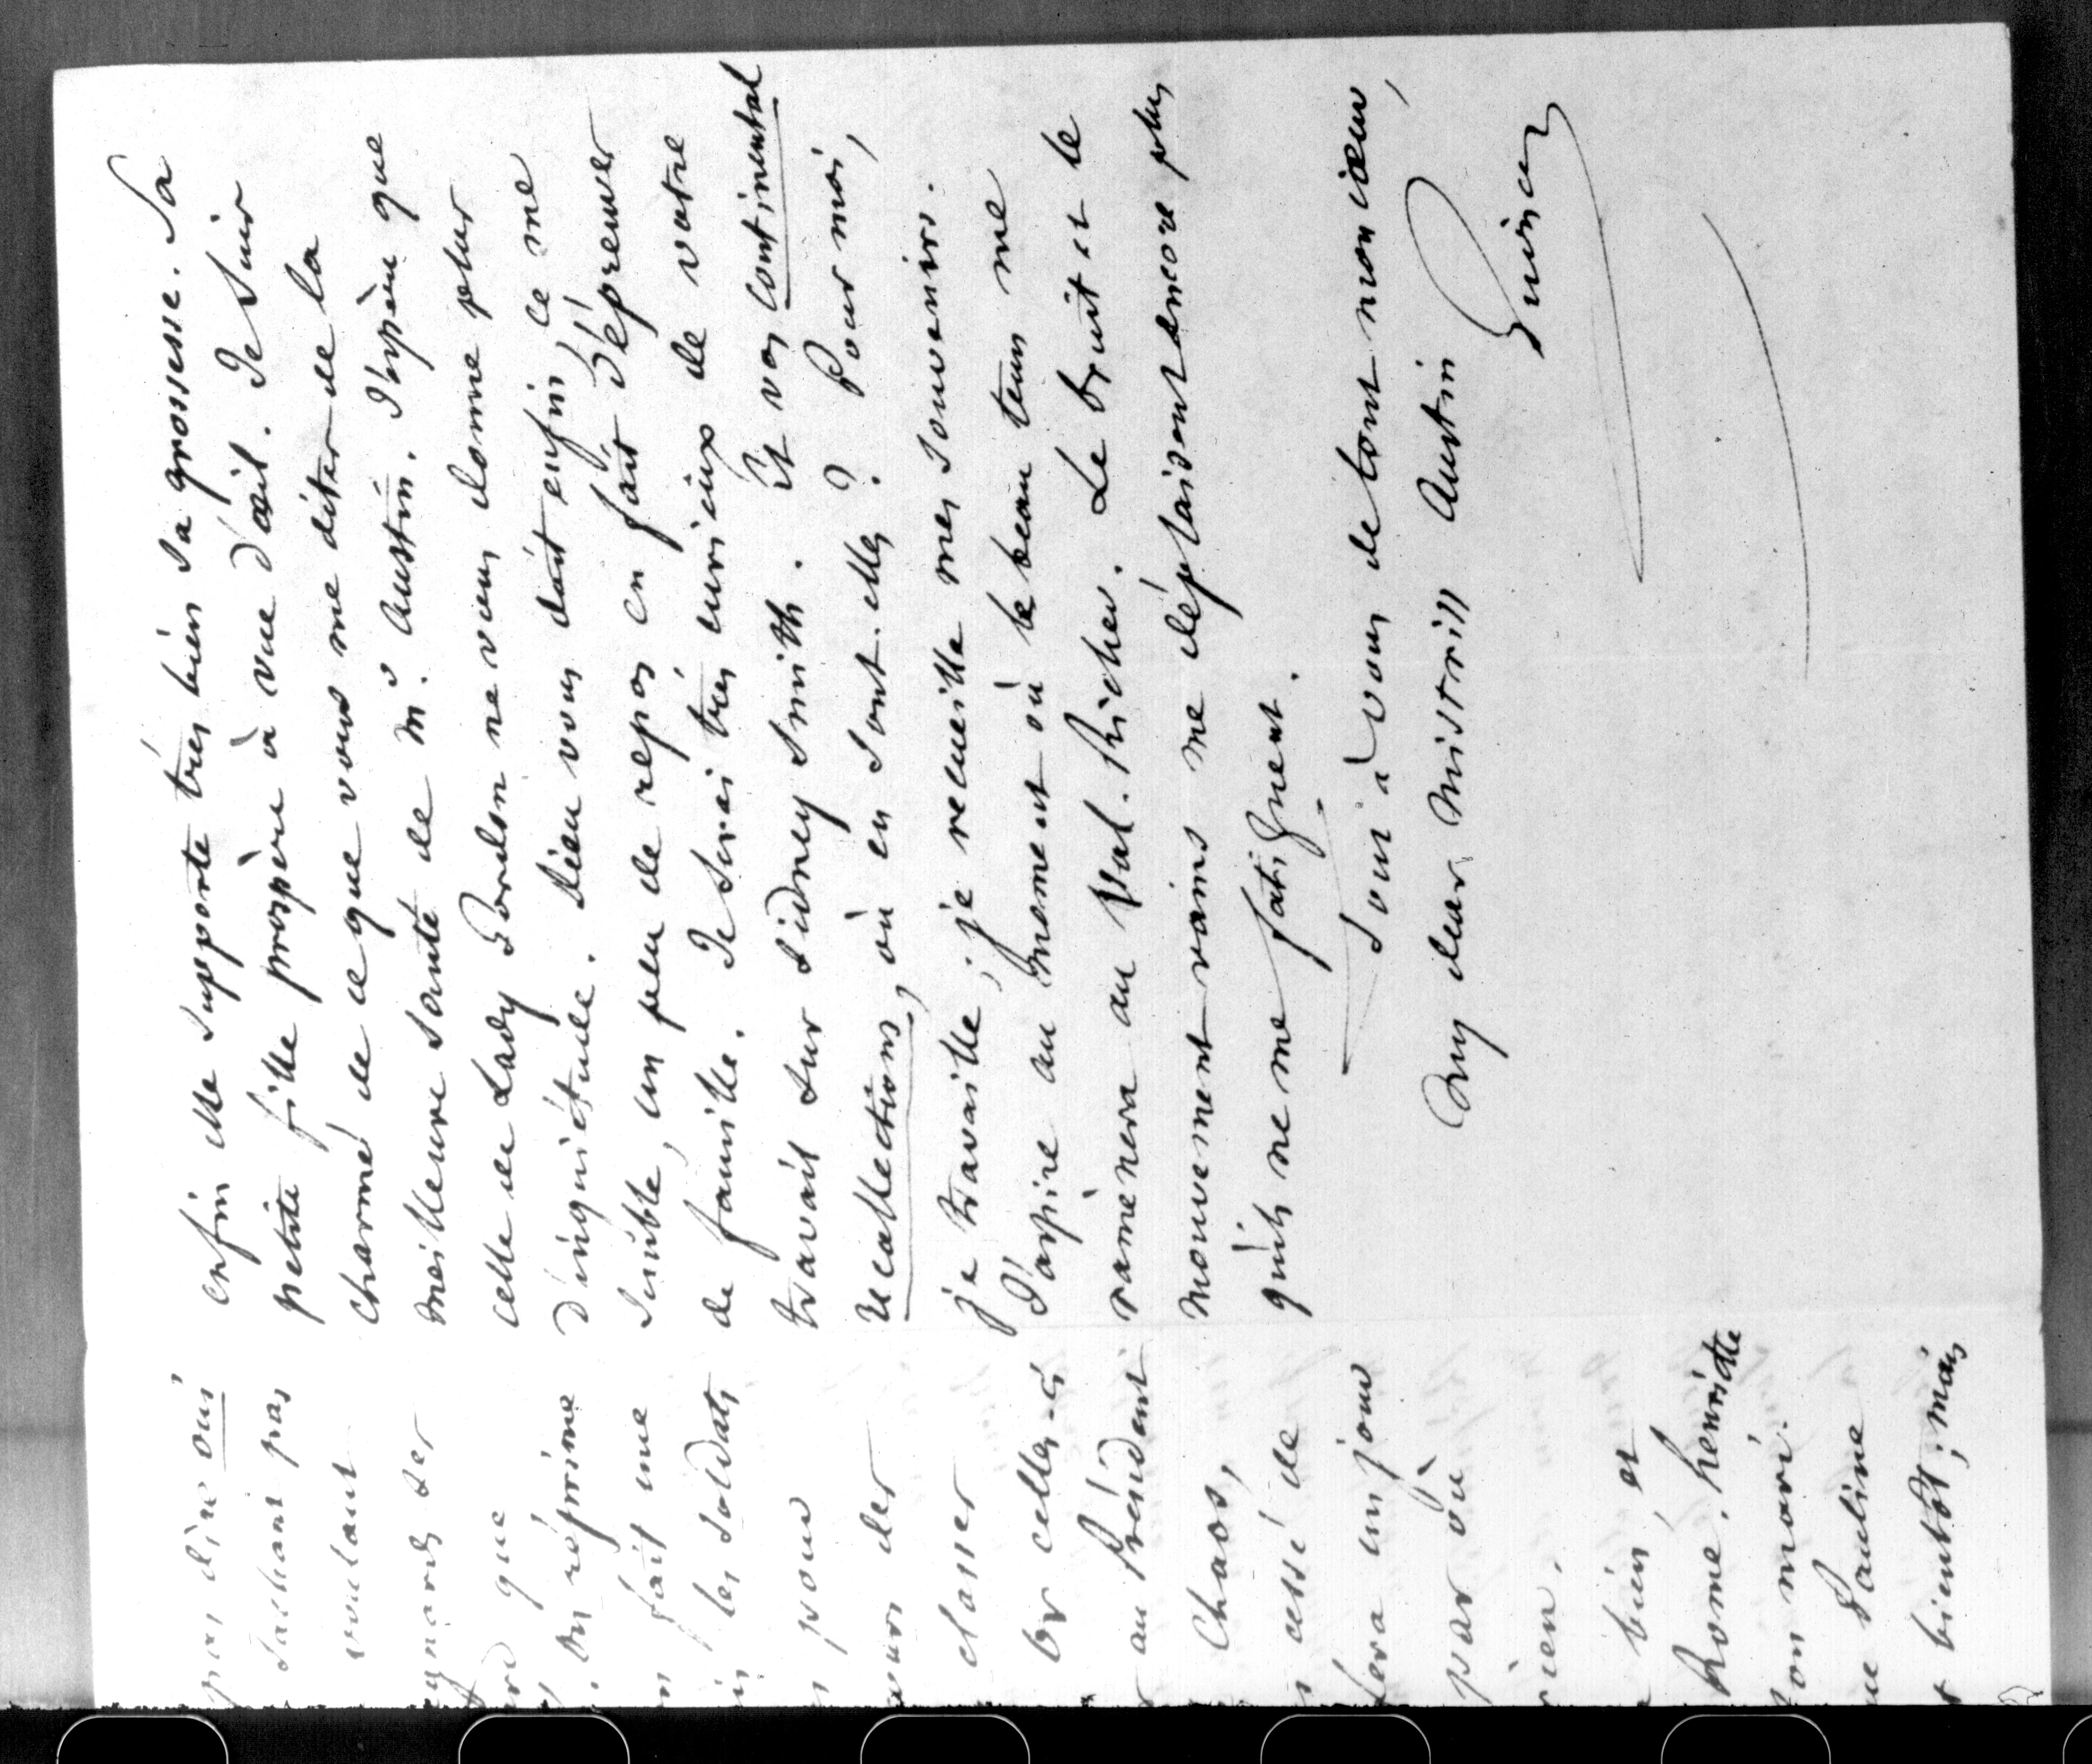 pas dire oui
sachant pas
voulant
que
réprime
fait une
les soldats
pour
des
classer
Or celles-ci
au Président
Chaos,
cessé de
fera un jour
par où
rien.
bien, et
Rome. henriette
son mari.
Pauline
bientôt ; mais
enfin elle supporte très bien sa grossesse. Sa
petite fille prospère à vue d'œil. Je suis
charmé de ce que vous me dites de la
meilleure santé de Mr. Austin. J'espère que
celle de Lady Gordon ne vous donne plus
d'inquiétude. Dieu vous doit enfin, ce me
semble, un peu de repos en fait d'épreuves
de famille. Je serai très curieux de votre
travail sur Sidney Smith. Et vos Continental
recollections, où en sont-elles ? Pour moi,
je travaille ; je recueille mes souvenirs.
J'aspire au moment où le beau tems me
ramènera au Val-Richer. Le bruit et le
mouvement vains me déplaisent encore plus
qu'ils ne me fatiguent.
Tout à vous de tout mon cœur,
My dear Mistriss Austin
Guizot